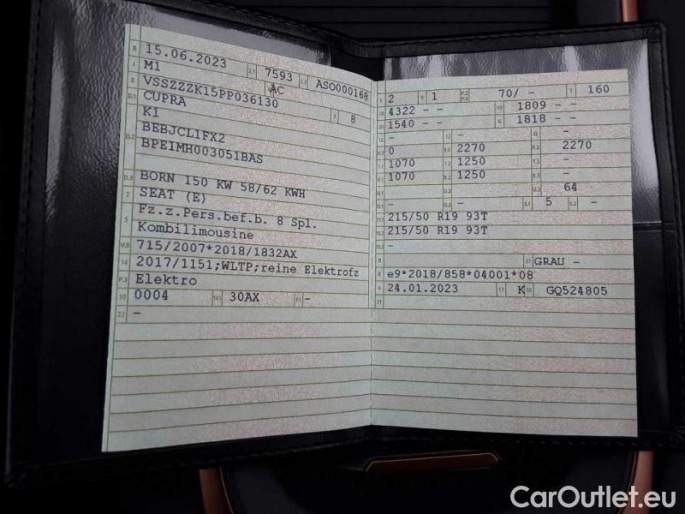 15.06.2023 7593 ASO000168
M1 AC
VSSZZZK15PP036130
CUPRA 8
K1
BEBJCL1FX2
BPE1MH003051BAS
BORN 150 KW 58/62 KWH
SEAT (E)
Fz.z.Pers.bef.b. 8 Spl.
Kombilimousine
715/2007*2018/1832AX
2017/1151;WLTP;reine Elektrofz
Elektro
0004 30AX -
-
2 1 70/ - 160
4322 - - 1809 - -
1540 - - 1818 - -
- - -
0 2270 2270
1070 1250 -
1070 1250 -
- - 64
- - - 5 -
215/50 R19 93T
215/50 R19 93T
-
GRAU -
e9*2018/858*04001*08
24.01.2023 K GQ524805
CarOutlet.eu